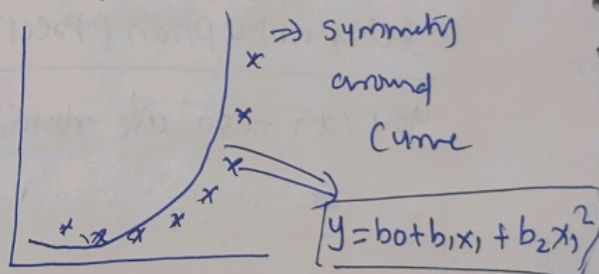 x ⇒ symmetry
around
Curve
y = b0+b1x1 + b2x1²